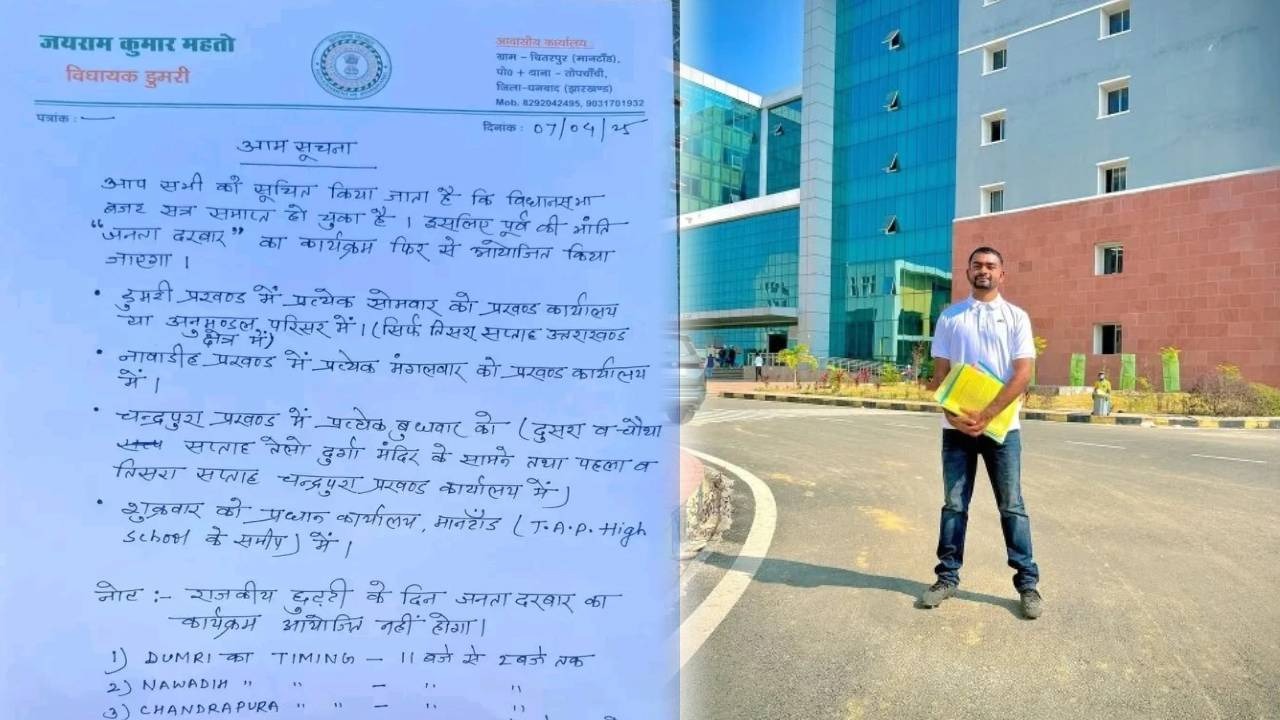 जयराम कुमार महतो
विधायक डुमरी
आवासीय कार्यालय :
ग्राम – चितरपुर (मानटाँड़),
पो० + थाना - तोपचाँची,
जिला-धनबाद (झारखण्ड)
Mob. 8292042495, 9031701932
पत्रांक : –
दिनांक : 07/04/25
आम सूचना
आप सभी को सूचित किया जाता है कि विधानसभा
बजट सत्र समाप्त हो चुका है । इसलिए पूर्व की भाँति
“जनता दरबार” का कार्यक्रम फिर से आयोजित किया
जाएगा ।
• डुमरी प्रखण्ड में प्रत्येक सोमवार को प्रखण्ड कार्यालय
या अनुमण्डल परिसर में । (सिर्फ तिसरा सप्ताह उत्तराखण्ड
क्षेत्र में)
• नावाडीह प्रखण्ड में प्रत्येक मंगलवार को प्रखण्ड कार्यालय
में ।
• चन्द्रपुरा प्रखण्ड में प्रत्येक बुधवार को (दुसरा व चौथा
सप्ताह तेलो दुर्गा मंदिर के सामने तथा पहला व
तिसरा सप्ताह चन्द्रपुरा प्रखण्ड कार्यालय में)
• शुक्रवार को प्रधान कार्यालय, मानटाँड (T.A.P. High
School के समीप) में ।
नोट :- राजकीय छुट्टी के दिन जनता दरबार का
कार्यक्रम आयोजित नहीं होगा ।
1) DUMRI का TIMING – 11 बजे से 2 बजे तक
2) NAWADIH " " – " "
3) CHANDRAPURA " " – " "